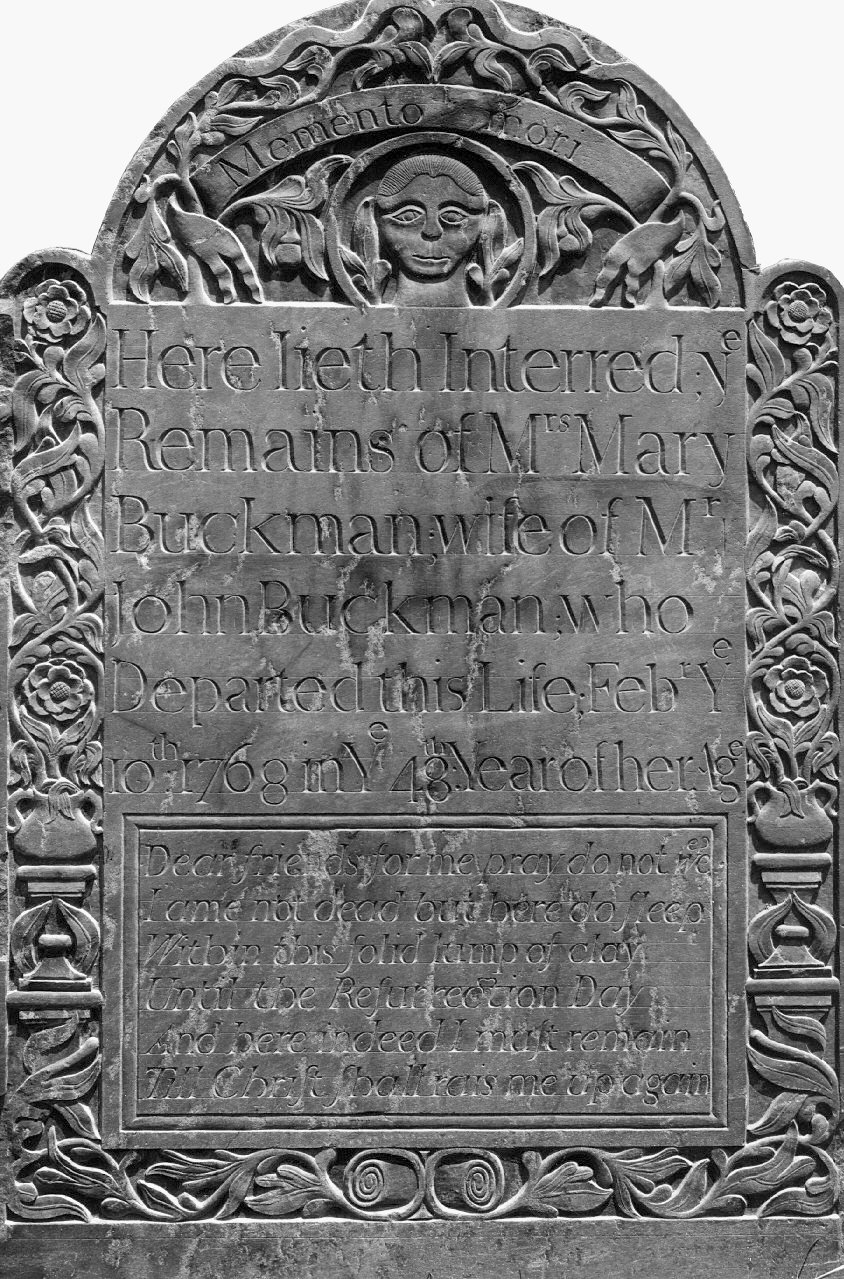 Memento mori
Here lieth Interred; yᵉ
Remains of Mʳˢ Mary
Buckman; wife of Mʳ
John Buckman; who
Departed this Life; Febʳʸ yᵉ
10ᵗʰ 1768 in Yᵉ 48ᵗʰ Year of her Agᵉ
Dear friends for me pray do not weᵉᵖ
I am not dead but here do sleep
Within this solid lump of clay
Until the Resurrection Day
And here indeed I must remain
Till Christ shall rais me up again